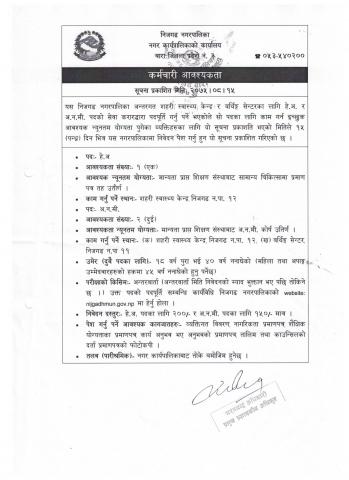 निजगढ नगरपालिका
नगर कार्यपालिकाको कार्यालय
बारा जिल्ला प्रदेश नं. २
☎ ०५३-५४०२००
कर्मचारी आवश्यकता
सूचना प्रकाशित मिति: २०७५।०८।१५
यस निजगढ नगरपालिका अन्तरगत शहरी स्वास्थ्य केन्द्र र वर्थिङ सेन्टरका लागि हे.अ. र
अ.न.मी. पदको सेवा करारद्वारा पदपूर्ति गर्नु पर्ने भएकोले सो पदका लागि काम गर्न इच्छुक
आवश्यक न्यूनतम योग्यता पुगेका व्यक्तिहरुका लागि यो सूचना प्रकाशति भएको मितिले १५
(पन्ध्र) दिन भित्र यस नगरपालिकामा निवेदन पेश गर्नु हुन यो सूचना प्रकाशित गरिएको छ ।
• पद:- हे.अ
• आवश्यकता संख्या:- १ (एक)
• आवश्यक न्यूनतम योग्यता:- मान्यता प्राप्त शिक्षण संस्थाबाट सामान्य चिकित्सामा प्रमाण
पत्र तह उतीर्ण ।
• काम गर्नु पर्ने स्थान:- शहरी स्वास्थ्य केन्द्र निजगढ न.पा. १२
• पद:- अ.न.मी.
• आवश्यकता संख्या:- २ (दुई)
• आवश्यकता न्यूनतम योग्यता:- मान्यता प्राप्त शिक्षण संस्थाबाट अ.न.मी. कोर्ष उतिर्ण ।
• काम गर्नु पर्ने स्थान:- (क) शहरी स्वास्थ्य केन्द्र निजगढ न.पा. १२, (ख) वर्थिङ सेन्टर,
निजगढ न.पा ११
• उमेर (दुवैै पदका लागि). १८ वर्ष पुरा भई ४० वर्ष ननाघेको (महिला तथा अपाङ्ग
उम्मेदवारहरुको हकमा ४५ वर्ष ननाघेको हुनु पर्नेछ)
• परीक्षाको किसिम: अन्तरवार्ता (अन्तरवार्ता मिति निवेदनको म्याद भुक्तान भए पछि तोकिने
छ ।) उक्त पदको पदपूर्ति सम्बन्धि कार्यविधि निजगढ नगरपालिकाको website:
nijgadhmun.gov.np मा हेर्नु होला ।
• निवेदन दस्तुर:- हे.अ. पदका लागि २००/- र अ.न.मी. पदका लागि १५०/- मात्र ।
• पेश गर्नु पर्ने आवश्यक कागजातहरु:- व्यक्तिगत विवरण, नागरिकता प्रमाणपत्र, शैक्षिक
योग्यताका प्रमाणपत्र कार्य अनुभव भए अनुभवको प्रमाणपत्र, तालिम तथा काउन्सिलको
दर्ता प्रमाणपत्रको फोटोकपी ।
• तलव (पारीश्रमिक). नगर कार्यपालिकाबाट तोके बमोजिम हुनेछ ।
प्रमुख प्रशासकीय अधिकृत